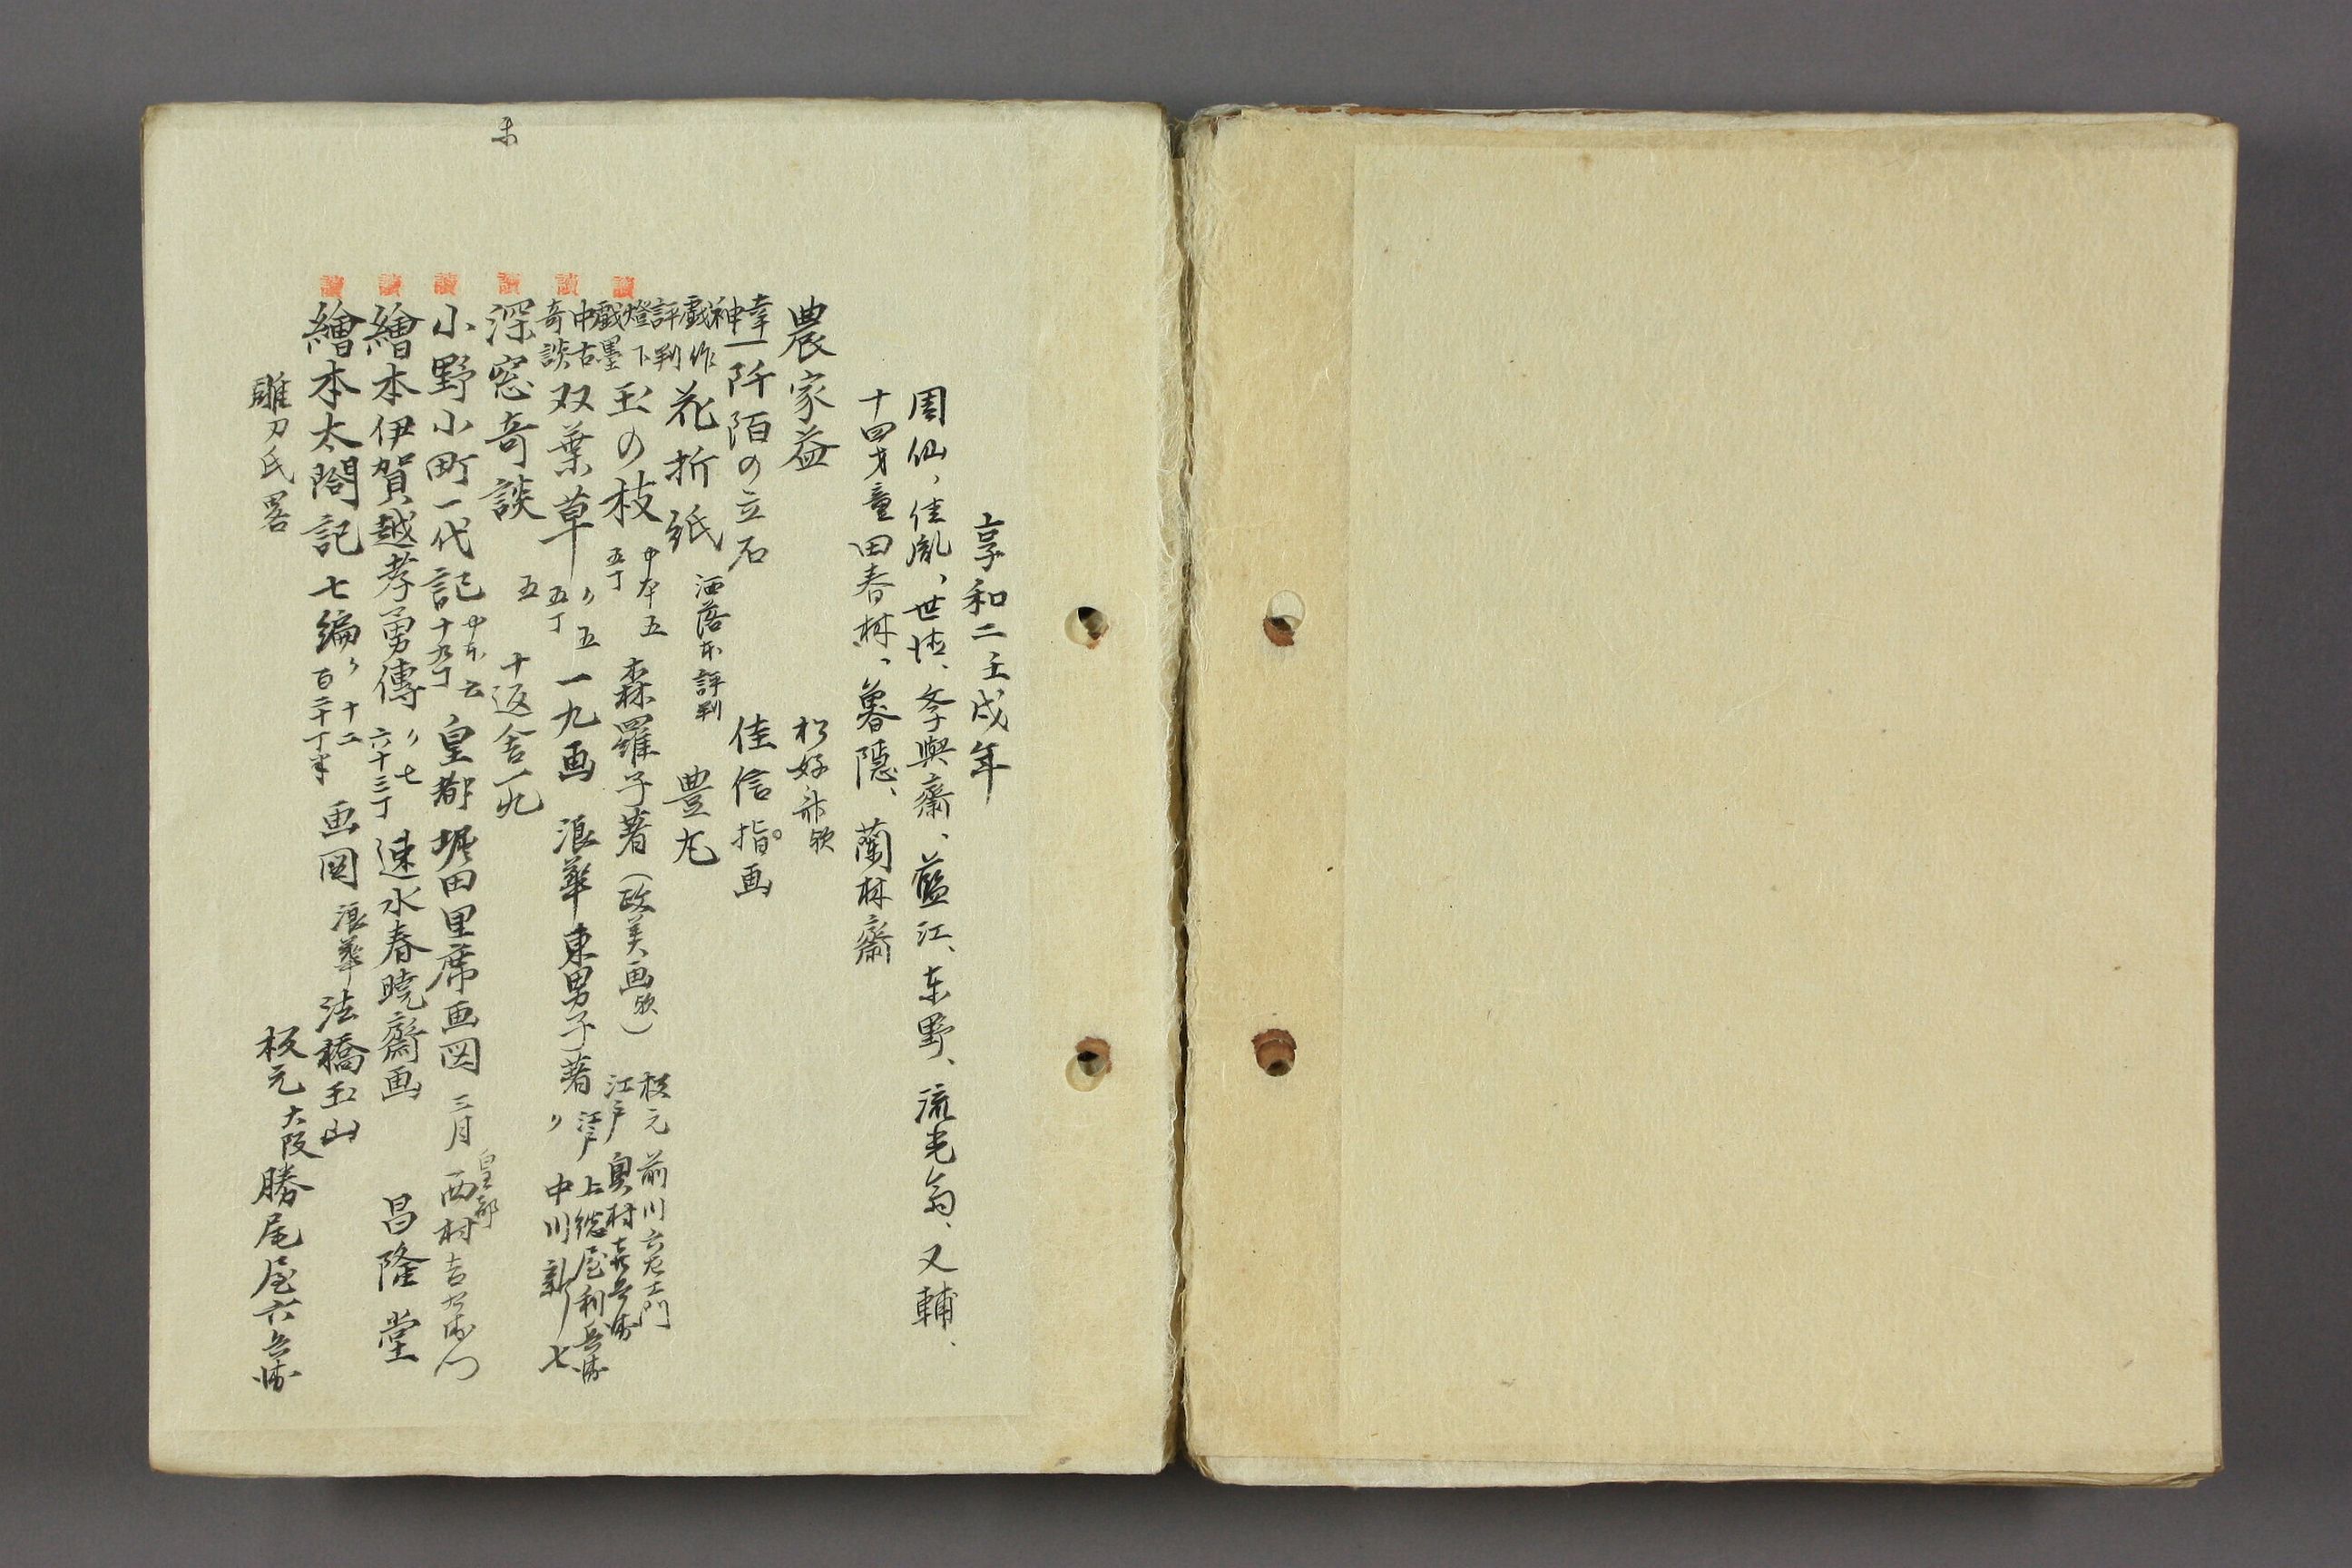 享和二壬戌年
周仙、佳胤、世煌、峯與齋、藍江、东野、流光翁、又輔、
十四才童田春林、暮隠、蘭林齋
農家益
松好齋欤
阡陌の立石
佳信指画
戯作評判 花折紙 洒落本評判 豊丸
燈下戯墨 玉の枝 中本五 五丁 森羅子著（政美画欤）
板元 前川六左エ門
江戸 奥村喜兵衛
中古奇談 双葉草 〃五 五丁 一九画 浪華東男子著
江戸 上総屋利兵衛
〃 中川新七
深窓奇談 五 十返舎一九
小野小町一代記 中本六 十九丁 皇都 堀田里席画図 三月
皇都 西村吉右衛門
繪本伊賀越孝勇傳 〃七 六十三丁 速水春暁齋画 昌隆堂
繪本太閤記 七編 〃十二 百二十丁半 画図 浪華法橋玉山
雕刀氏署
板元 大阪 勝尾屋六兵衛